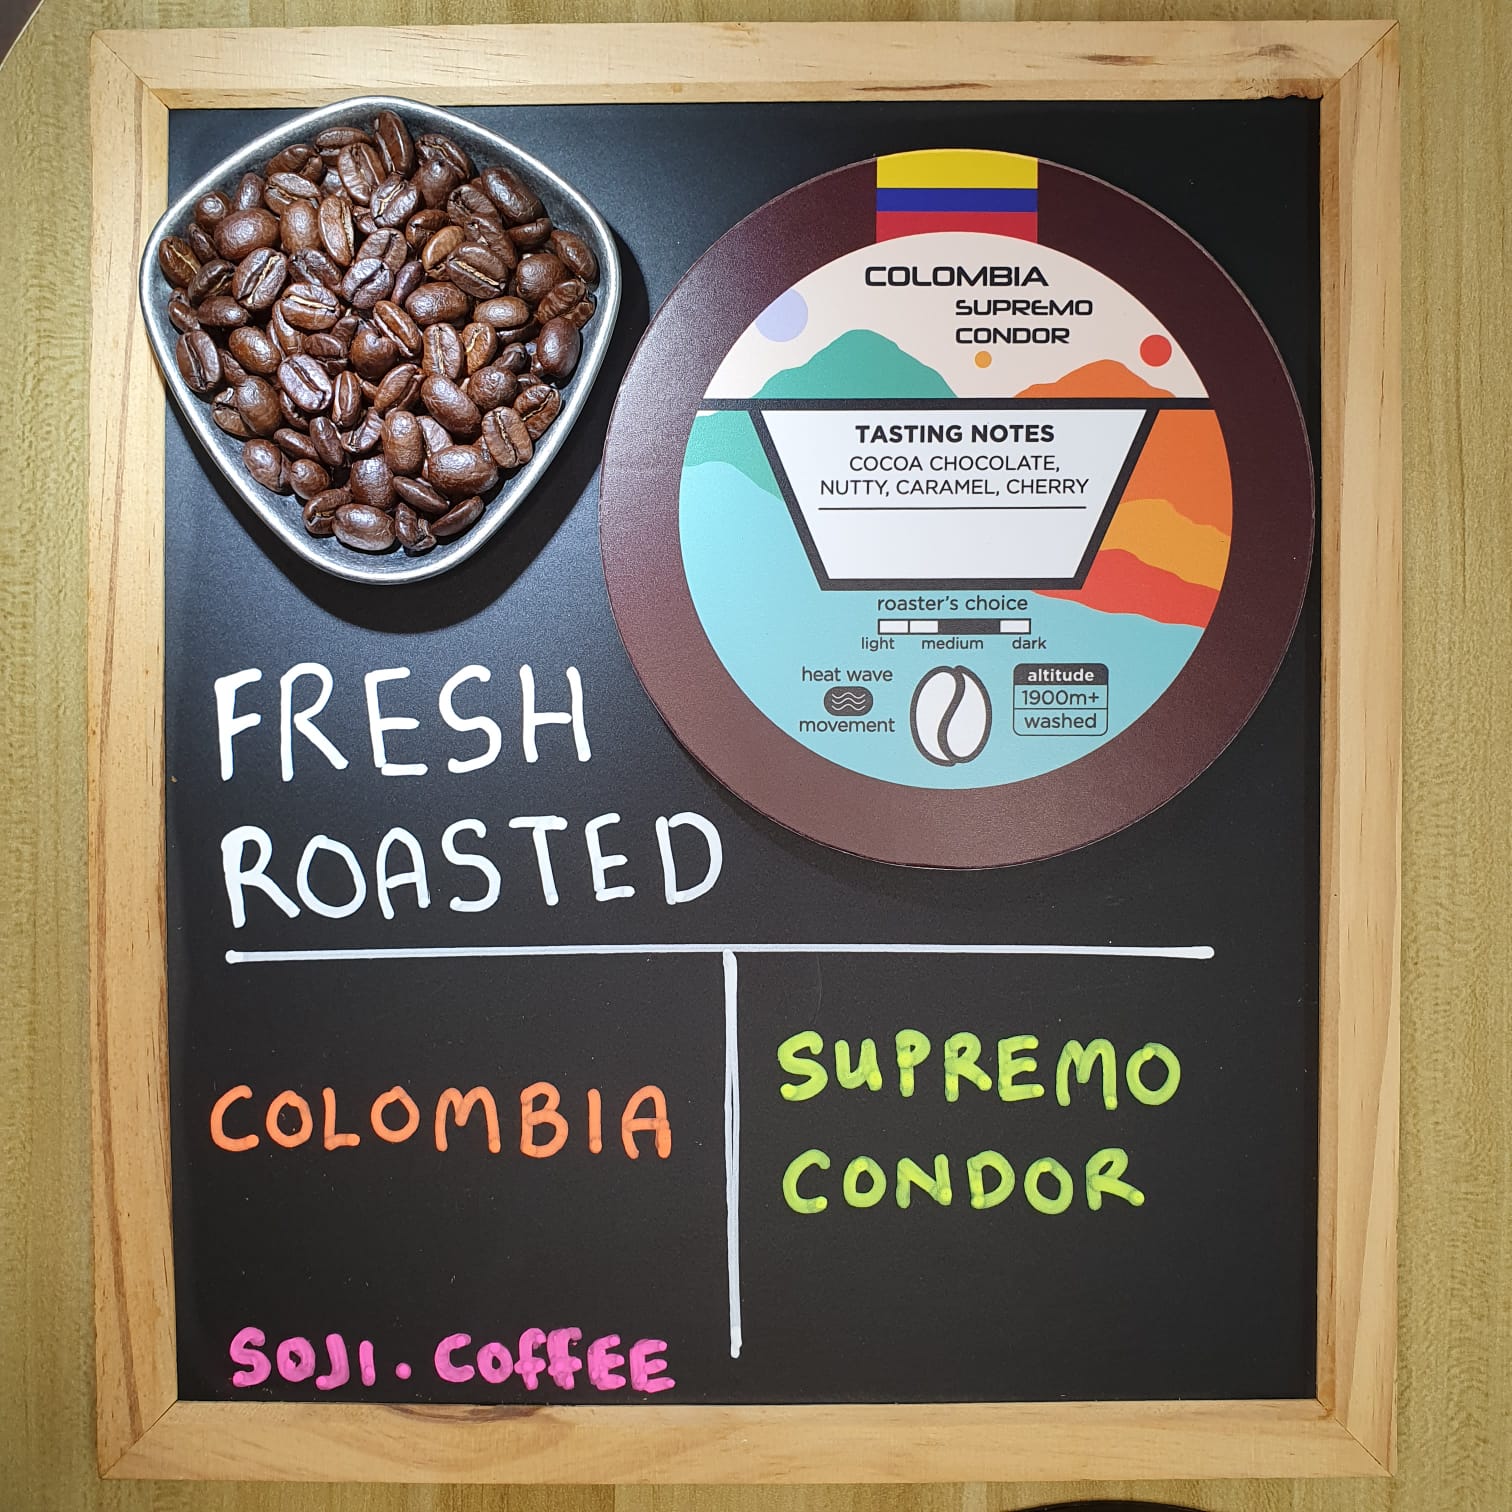 COLOMBIA
SUPREMO
CONDOR
TASTING NOTES
COCOA CHOCOLATE,
NUTTY, CARAMEL, CHERRY
roaster's choice
light medium dark
heat wave
movement
altitude
1900m+
washed
FRESH
ROASTED
COLOMBIA
SUPREMO
CONDOR
SOJI.COFFEE